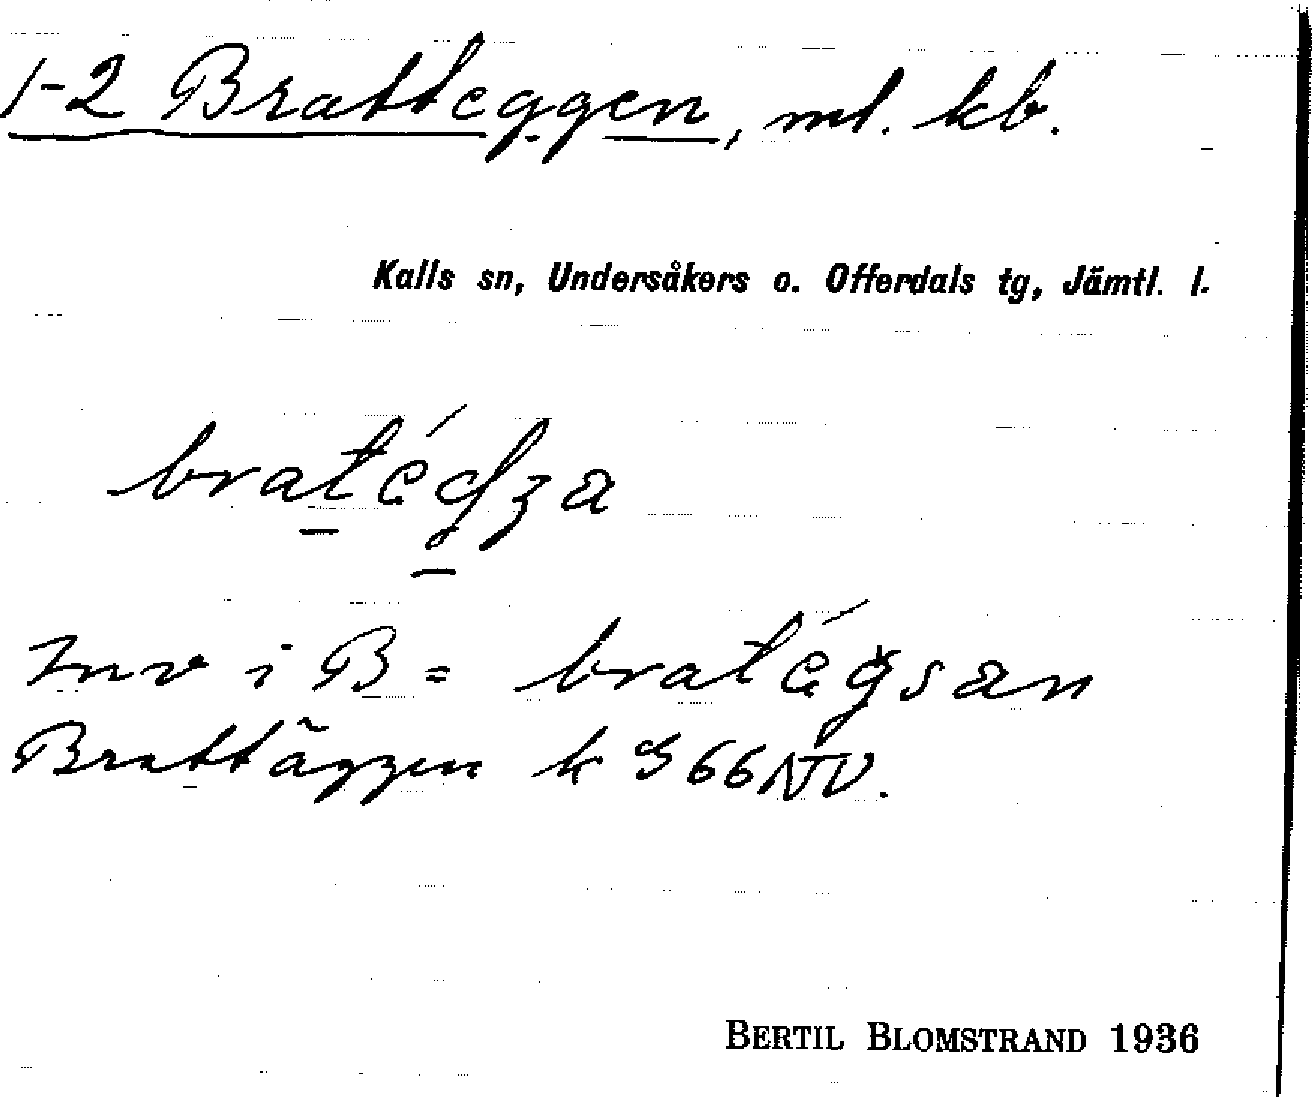 1-2 Bratteggen, ml. kb.
Kalls sn, Undersåkers o. Offerdals tg, Jämtl. l.
Inv i B =
Brattäggen k G 66 NV.
BERTIL BLOMSTRAND 1936